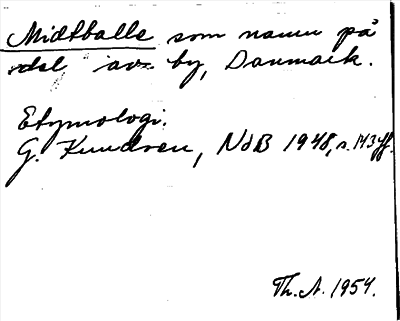 Midtballe som namn på
del av by, Danmark.
Etymologi.
G. Knudsen, NoB 1948, s. 143 ff.
Th. A. 1954.